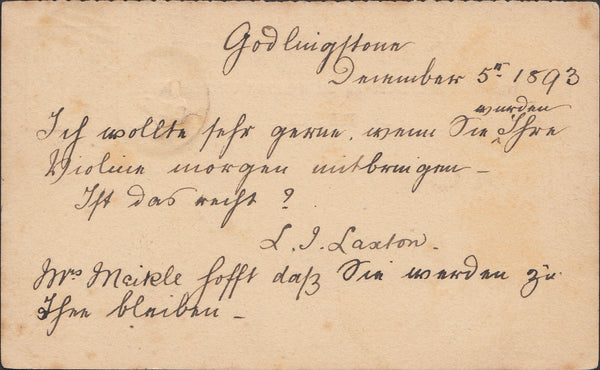 Godlingstone
December 5th 1893
Ich wollte sehr gerne, wenn Sie wurden Ihre
Violine morgen mitbringen –
Ist das recht?
L. J. Laxton.
Mrs Meikle hofft daß Sie werden zu
Thee bleiben –